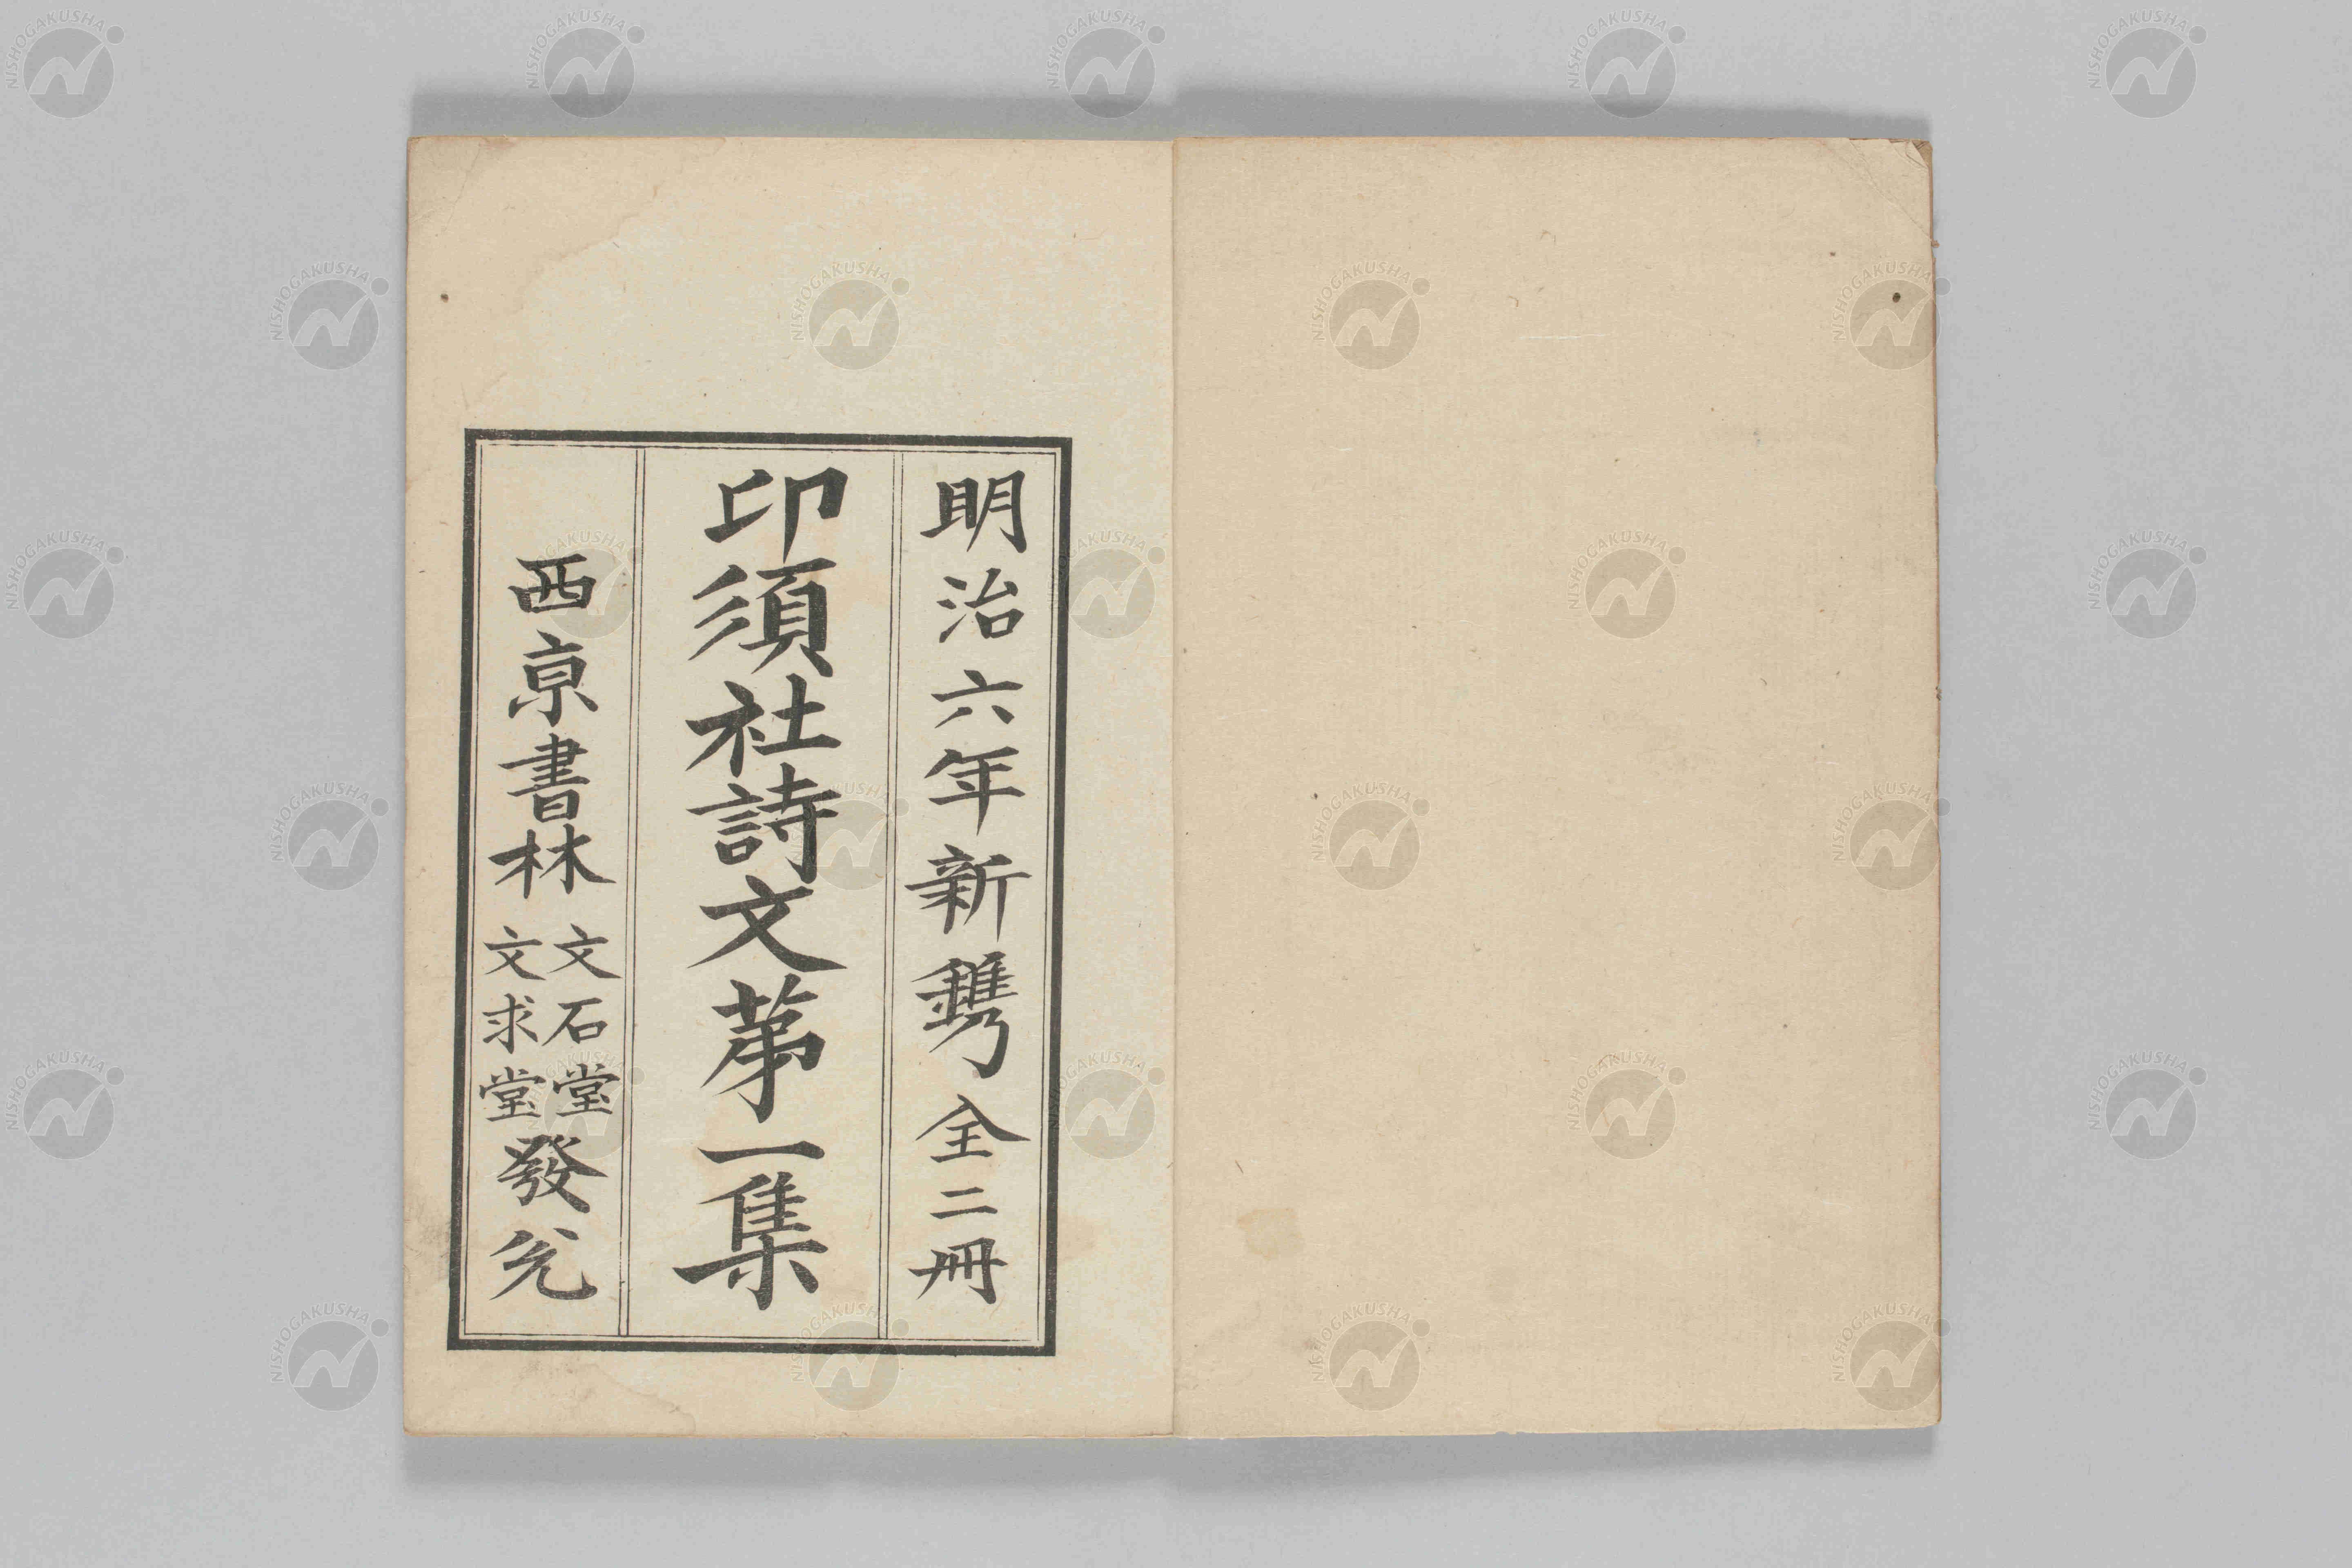 明治六年新鐫全二冊
印須社詩文苐一集
西京書林
文石堂
文求堂
發兌
NISHOGAKUSHA